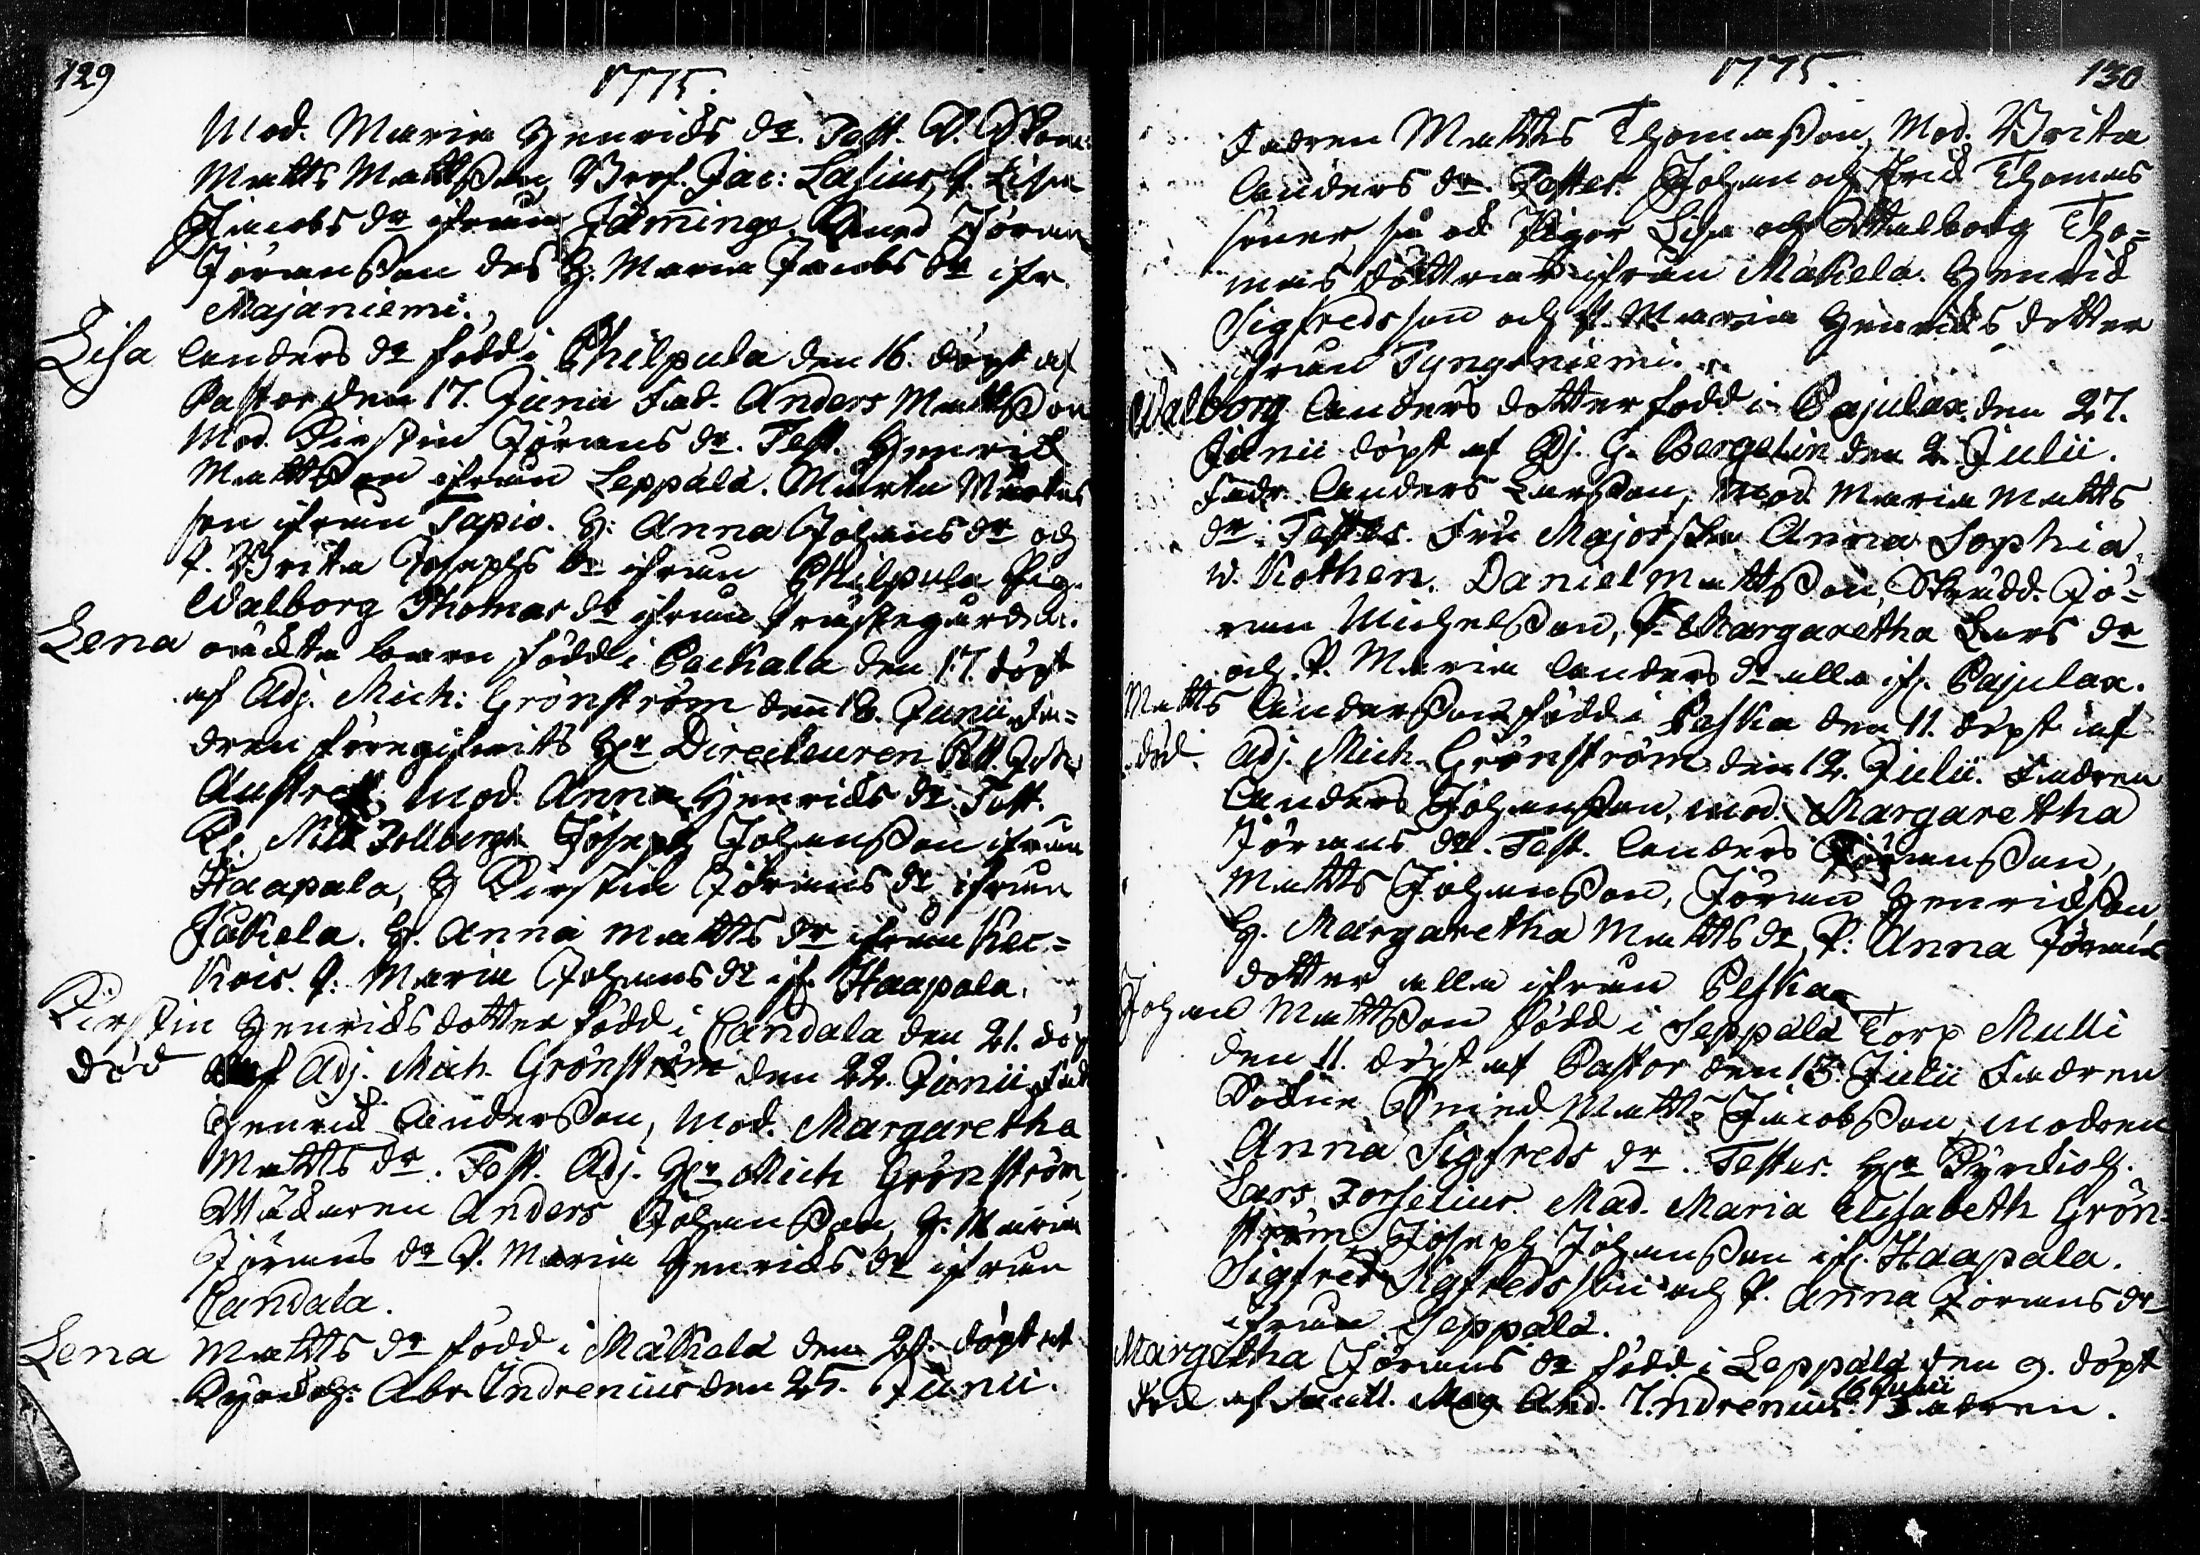 129
1775.
Mod. Maria Henrics dr. Test. A.
Matts Mattsson, Prof. Jac: Lasius, P. Lisa
Jacobs dr ifrån Jäminge. Jöran
Jöransson des H. Maria Jacobs dr ifr.
Majaniemi.
Lisa Anders dr född i Philpula den 16. döpt af
Pastor den 17. Junii Fad. Anders Mattsson
Mod. Kirstin Jörans dr. Test. Henric
Mattsson ifrån Leppälä. Mårtens
son ifrån Tapio. H: Anna Johans dr och
P. Brita Josephs dr ifrån Philpula Pig.
Walborg Thomas dr ifrån Prästegården.
Lena oäckta barn född i Packala den 17. döpt
af Adj. Mich: Grönström den 18. Junii Fa-
dren föregifvits Hr Directeuren
Mod. Anna Henrics dr. Test.
Nils Zollberg. Joseph Johansson ifrån
Haapala, H Kirstin Jörans dr ifrån
Jukiela. H. Anna Matts dr ifrån Kec-
kois. P. Maria Johans dr if. Haapala.
Kirstin Henricsdotter född i Candala den 21. döpt
död af Adj. Mich. Grönström den 22. Junii Fad
Henric Andersson, Mod. Margaretha
Matts dr. Test. Adj. Hr Mich Grönström
Anders Johansson, H. Maria
Jörans dr P. Maria Henrics dr ifrån
Candala.
Lena Matts dr född i Mäkelä den döpt af
Abr. Indrenius den 25. Junii.
1775.
130
Fadren Matts Thomasson, Mod. Brita
Anders dr. Testes. Johan och Thomas
söner, så och Pigor Lisa och Walborg Tho-
mas döttrar ifrån Mäkelä. Henric
Sigfredsson och P. Maria Henrics dotter
ifrån Tyngeniemi.
Walborg Anders dotter född i Pajulax den 27.
Junii döpt af Adj. G. Bergelin den 2. Julii.
Fadr. Anders Larsson, Mod Maria Matts
dr. Testes. Fru Majorska Anna Sophia
v. Kothen. Daniel Mattsson, Jö-
ran Michelsson, P. Margaretha Lars dr
och P. Maria Anders dr alla ifr. Pajulax.
Matts Andersson född i Paska den 11. döpt af
död. Adj. Mich. Grönström den 12. Julii. Fadren
Anders Johansson, Mod. Margaretha
Jörans dr. Test. Anders Jöransson,
Matts Johansson, Jöran Henricsson
H. Margaretha Matts dr, P: Anna Jörans
dotter alla ifrån Paska
Johan Mattsson född i Seppälä Torp Mulli
den 11. döpt af Pastor den 15. Julii Fadren
Sockne Smed Matts Jacobsson, modren
Anna Sigfreds dr. Testes. Hr
Lars Forselius. Mad. Maria Elisabeth Grön-
ström, Joseph Johansson ifr. Haapala.
Sigfred Sigfredsson och P. Anna Jörans dr
ifrån Seppälä.
Margetha Jörans dr född i Leppälä den 9. döpt
död af Mag And. Indrenius 16 Julii Fadren.